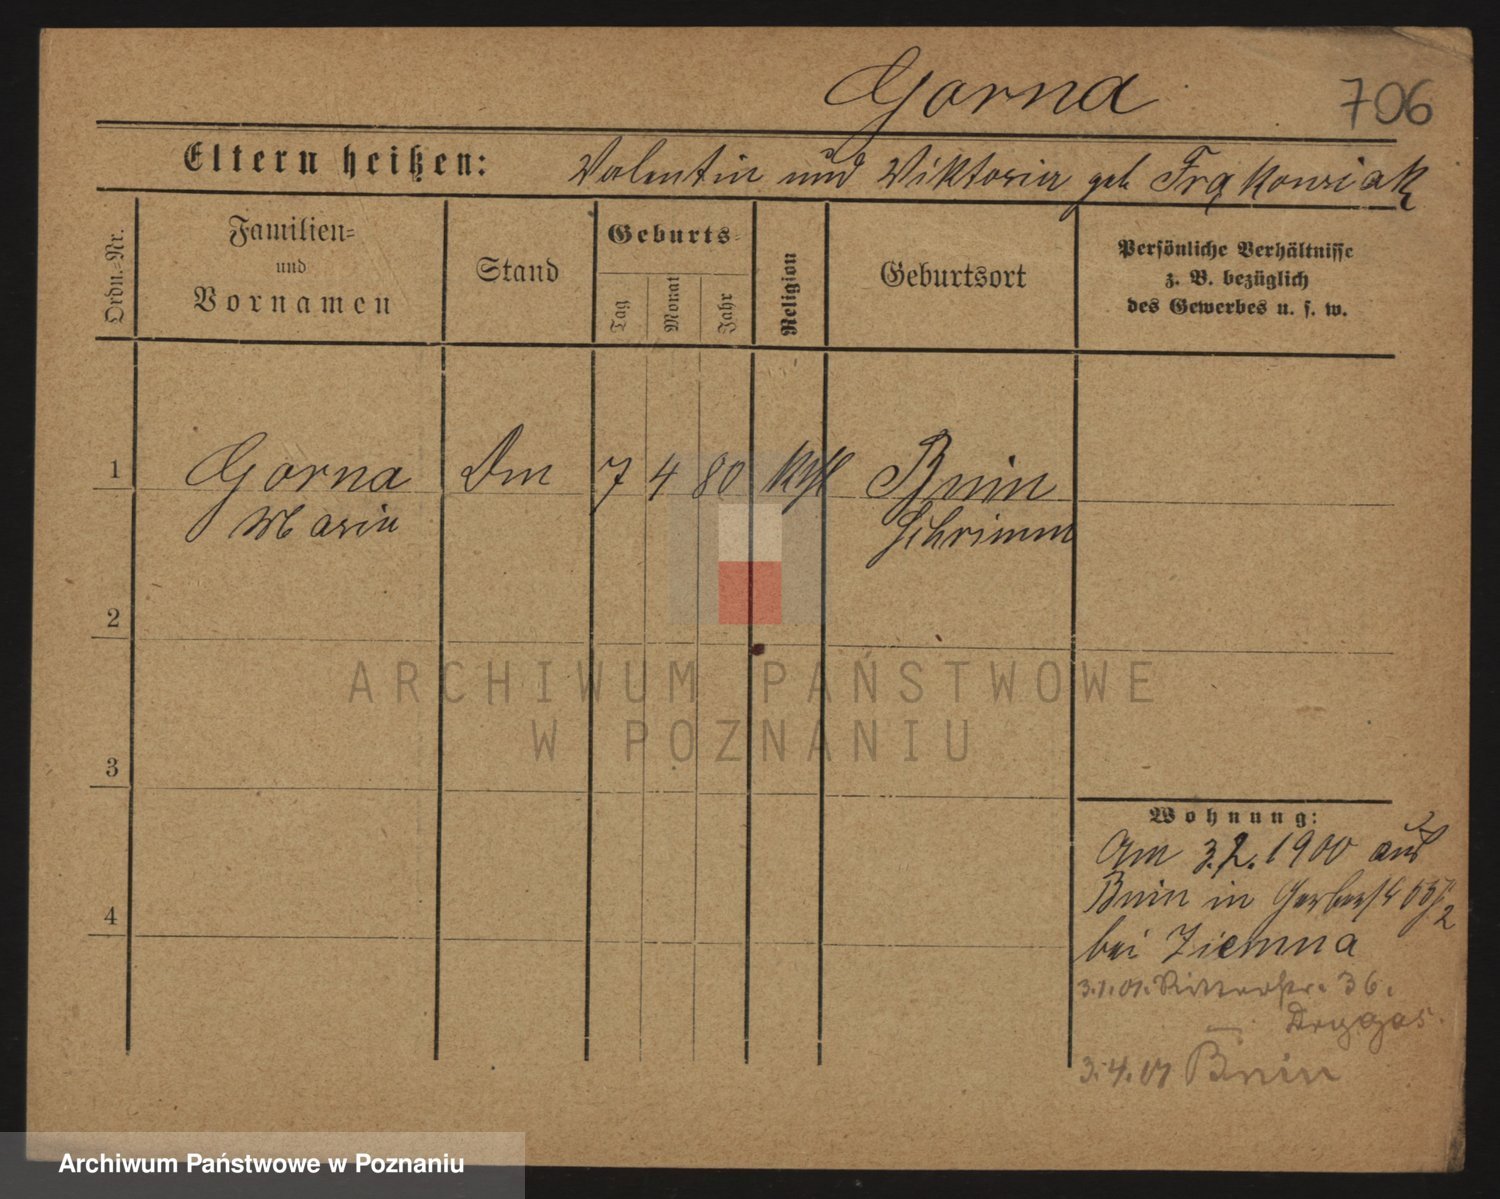 Gorna
706
Eltern heißen: Valentin und Viktoria geb Frąkowiak
Ordn.=Nr.
Familien=
und
Vornamen
Stand
Geburts=
Tag
Monat
Jahr
Religion
Geburtsort
Persönliche Verhältnisse
z. B. bezüglich
des Gewerbes u. s. w.
1
Gorna Dm 7 4 80 kth Bnin
Maria Schrimm
2
3
4
ARCHIWUM PAŃSTWOWE
W POZNANIU
Wohnung:
Am 3.2.1900 aus
Bnin in
bei Ziemna
3.1.01. Ritterstr. 36.
Drygas.
3.4.01 Bnin
Archiwum Państwowe w Poznaniu